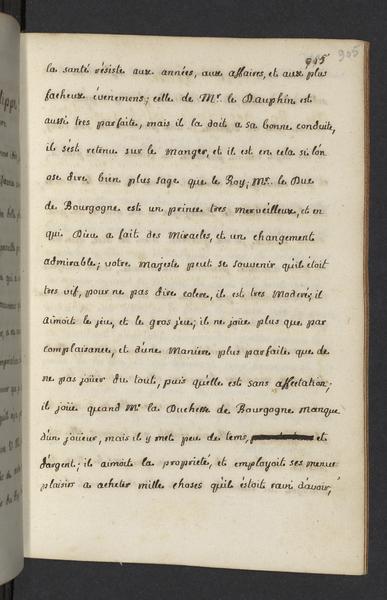 905 905
la santé résiste aux années, aux affaires, et aux plus
facheux évenemens; celle de Mr. le Dauphin est
aussi tres parfaite, mais il la doit a sa bonne conduite,
il s'est retenu sur le manger, et il est en cela si l'on
ose dire bien plus sage que le Roy; Mr. le Duc
de Bourgogne est un prince tres merveilleux, et en
qui Dieu a fait des Miracles, et un changement
admirable; votre Majesté peut se souvenir qu'il étoit
tres vif, pour ne pas dire colere, il est tres Moderé; il
aimoit le jeu, et le gros jeu; il ne joüe plus que par
complaisance, et d'une Maniere plus parfaite que de
ne pas joüer du tout, puis qu'elle est sans affectation;
il joüe quand Me. la Duchesse de Bourgogne manque
d'un joüeur, mais il y met peu de tems, et
d'argent; il aimoit la propreté, et employoit ses menus
plaisirs a acheter mille choses qu'il éstoit ravi d'avoir,